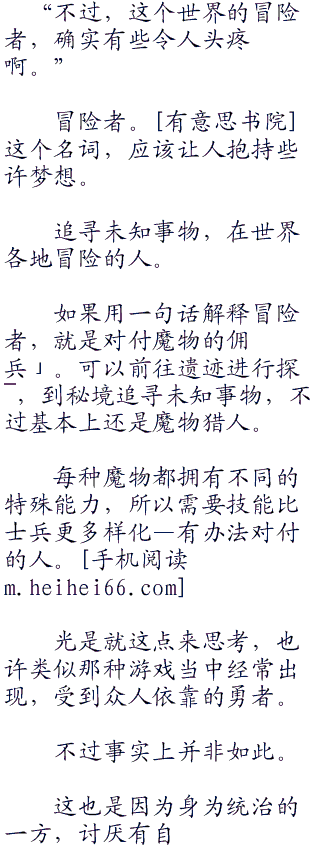 “不过，这个世界的冒险
者，确实有些令人头疼
啊。”
冒险者。[有意思书院]
这个名词，应该让人抱持些
许梦想。
追寻未知事物，在世界
各地冒险的人。
如果用一句话解释冒险
者，就是对付魔物的佣
兵」。可以前往遗迹进行探
，到秘境追寻未知事物，不
过基本上还是魔物猎人。
每种魔物都拥有不同的
特殊能力，所以需要技能比
士兵更多样化—有办法对付
的人。[手机阅读
m.heihei66.com]
光是就这点来思考，也
许类似那种游戏当中经常出
现，受到众人依靠的勇者。
不过事实上并非如此。
这也是因为身为统治的
一方，讨厌有自